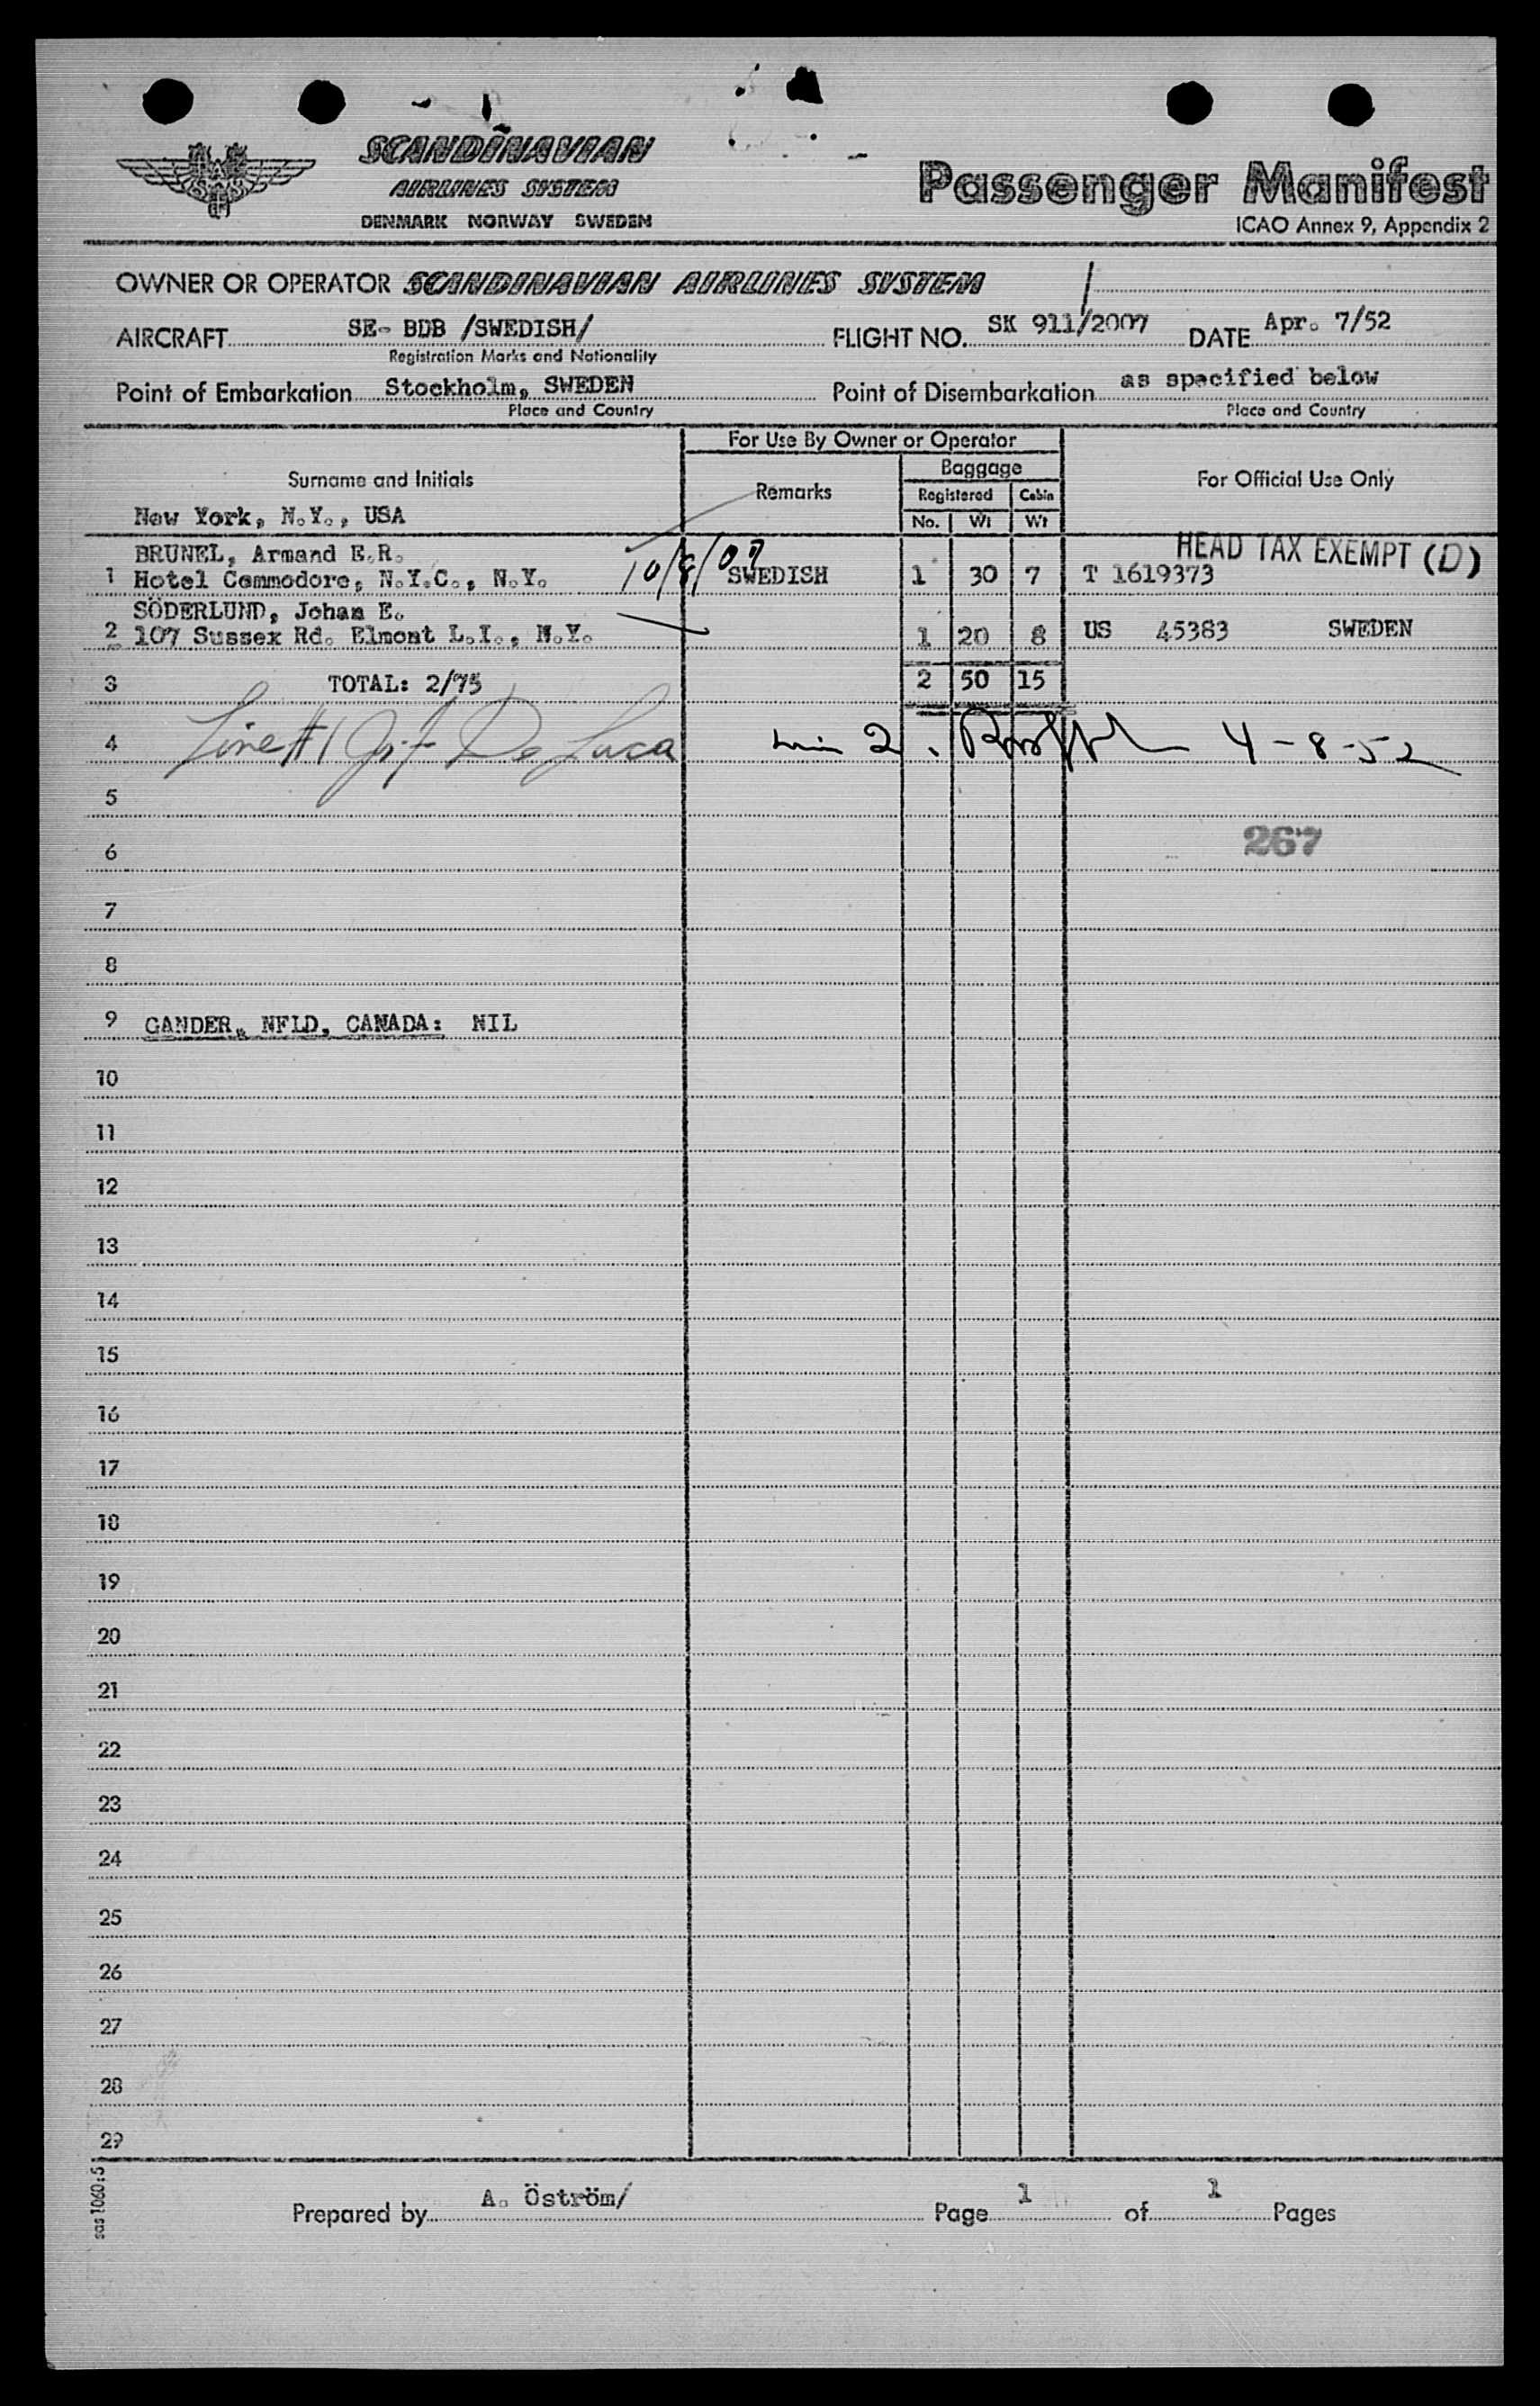 SCANDINAVIAN
AIRLINES SYSTEM
DENMARK NORWAY SWEDEN
Passenger Manifest
ICAO Annex 9, Appendix 2
OWNER OR OPERATOR SCANDINAVIAN AIRLINES SYSTEM
AIRCRAFT SE- BDB /SWEDISH/ FLIGHT NO. SK 911/2007 DATE Apr. 7/52
Registration Marks and Nationality
Point of Embarkation Stockholm, SWEDEN Point of Disembarkation as specified below
Place and Country Place and Country
For Use By Owner or Operator
Surname and Initials Remarks Baggage For Official Use Only
Registered Cabin
New York, N.Y., USA No. Wt Wt
BRUNEL, Armand E.R. HEAD TAX EXEMPT (D)
1 Hotel Commodore, N.Y.C., N.Y. 10/8/07 SWEDISH 1 30 7 T 1619373
SÖDERLUND, Johan E.
2 107 Sussex Rd. Elmont L.I., N.Y. 1 20 8 US 45383 SWEDEN
3 TOTAL: 2/75 2 50 15
4 Line #1 De Luca 2. 4-8-52
5
6 267
7
8
9 GANDER, NFLD, CANADA: NIL
10
11
12
13
14
15
16
17
18
19
20
21
22
23
24
25
26
27
28
29
sas 1060:5
Prepared by A. Öström/ Page 1 of 1 Pages